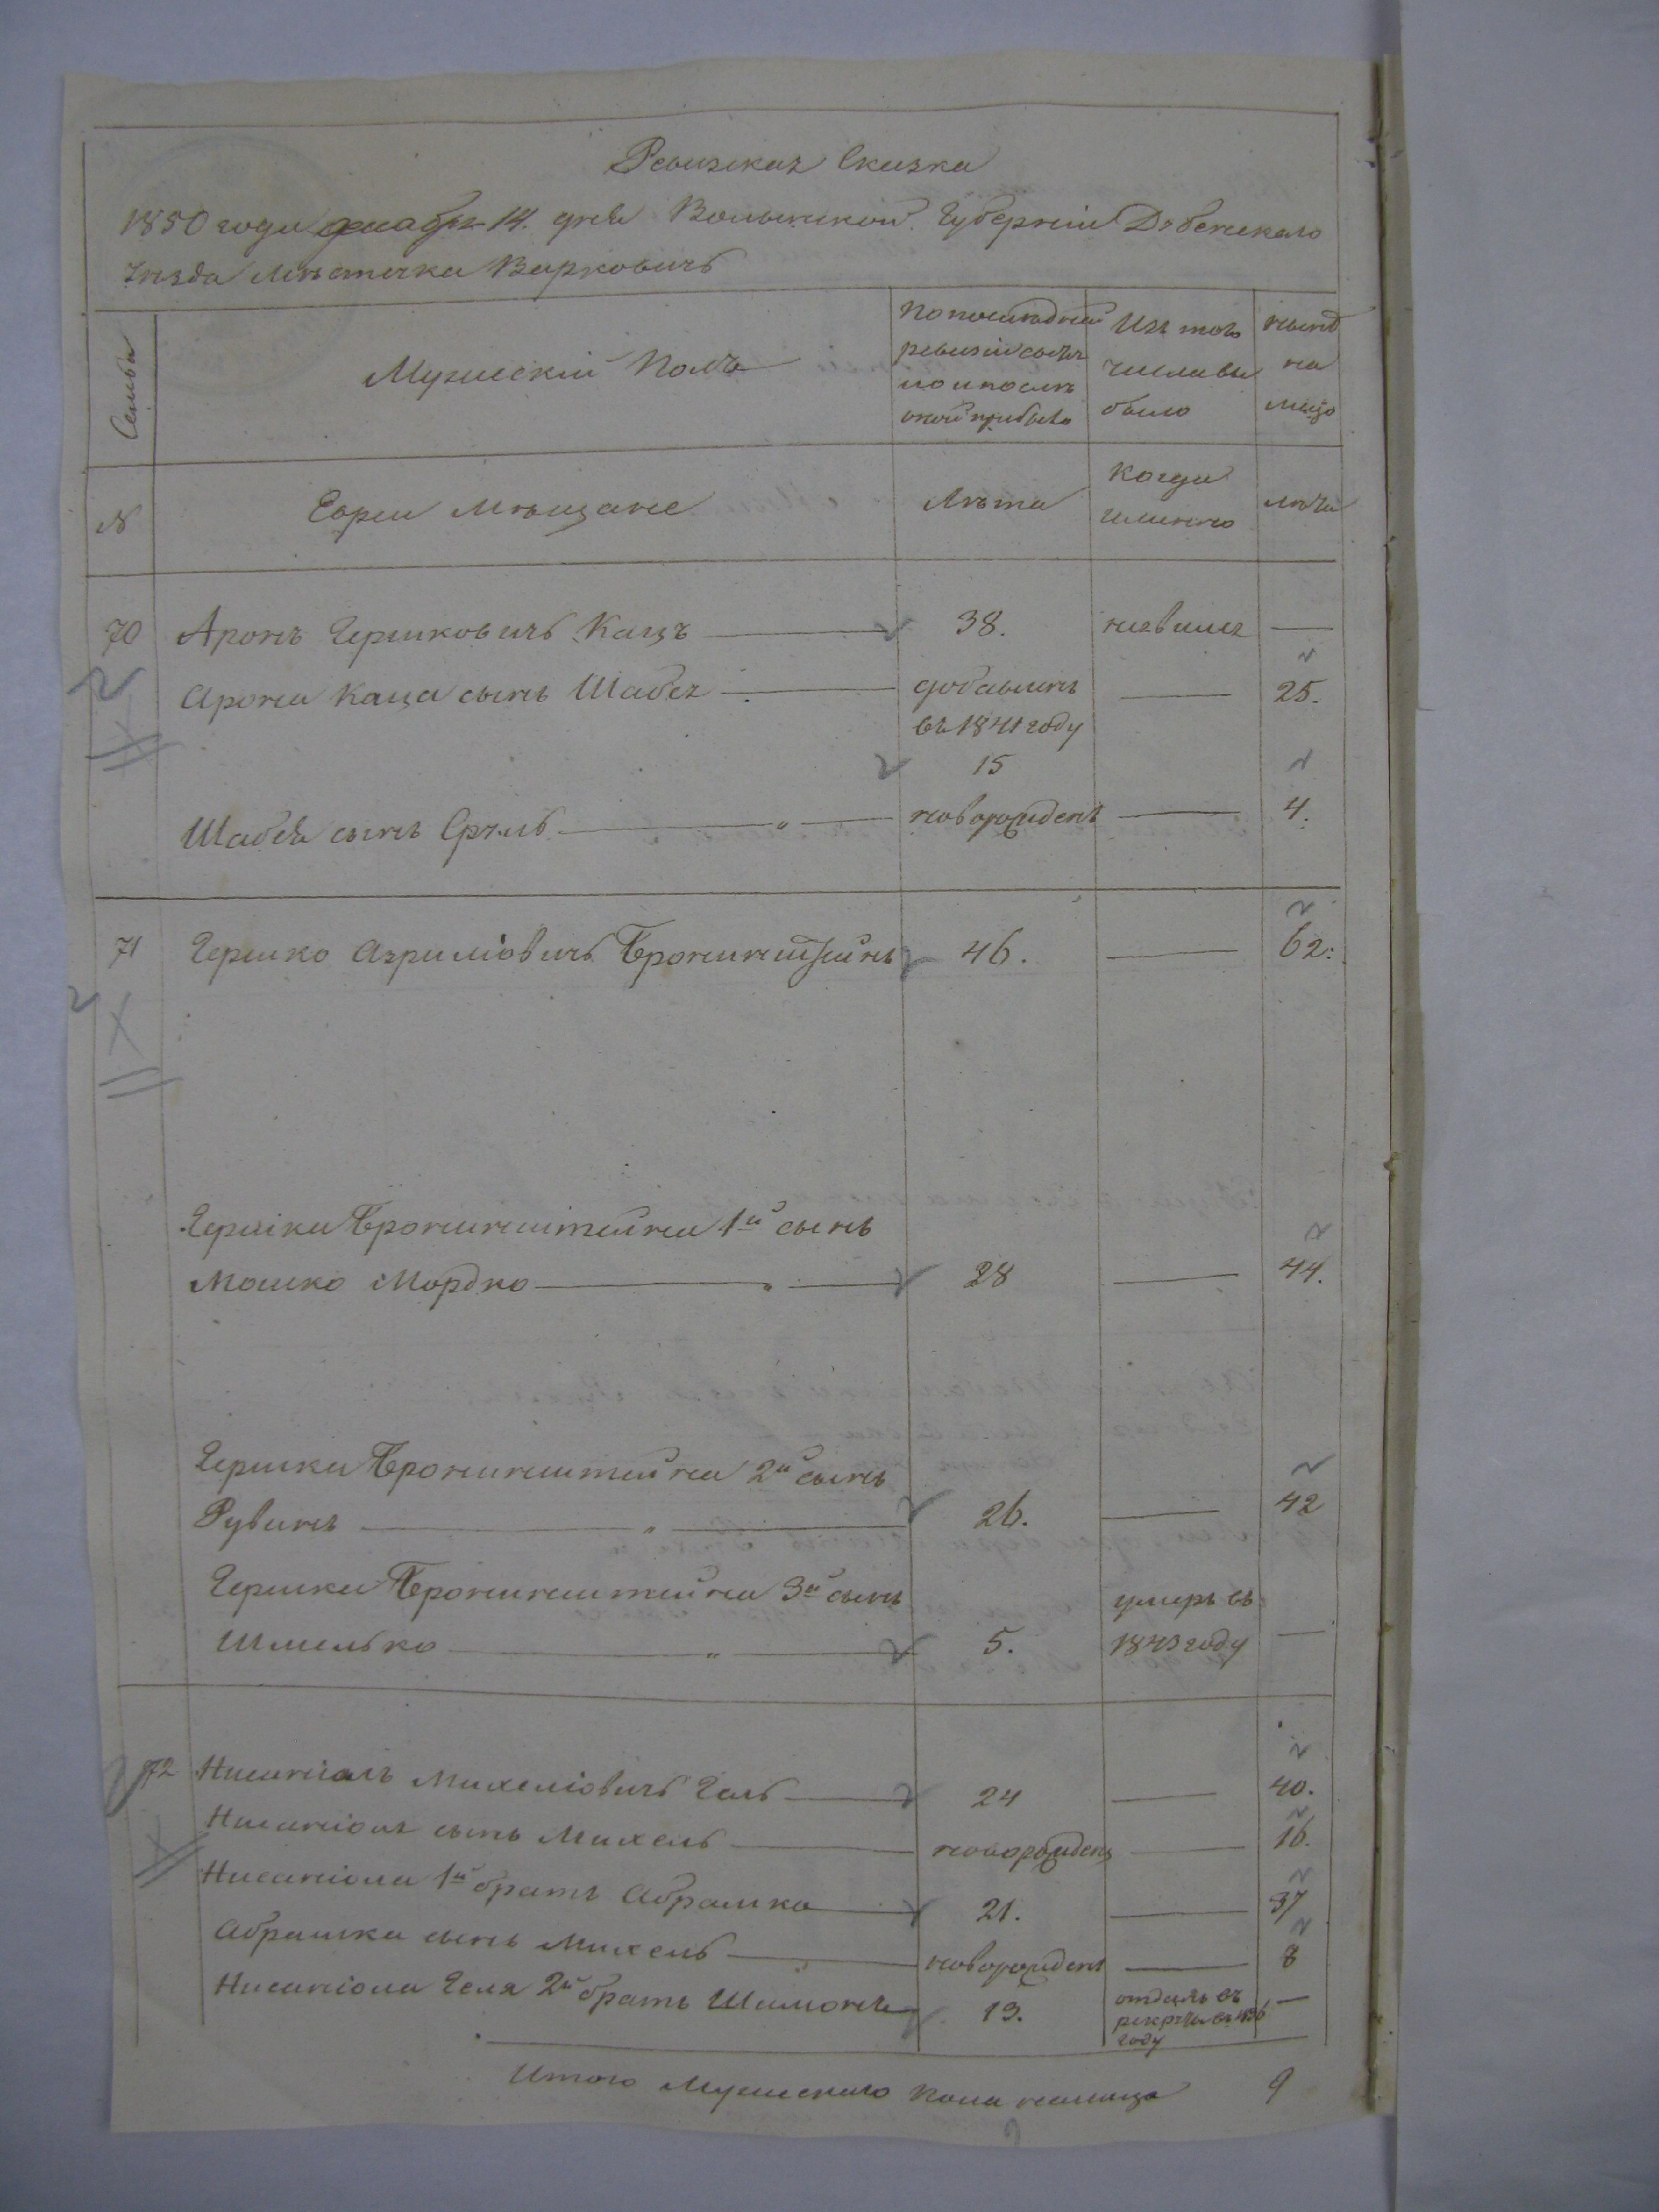 Ревизская Сказка
1850 года декабря 14. дня Волынской Губерніи Дубенскаго
Уезда Местечка Варковичъ
Семья
Мужескій Полъ
По последней
ревизіи состо
яло и после
оной прибыло
Изъ того
числа вы
было
ныне
на
лицо
№
Евреи Мещане
Лета
Когда
именно
лета
70 Аронъ Гершковичъ Кацъ 38. неявился —
Арона Каца сынъ Шабся добавленъ — 25.
въ 1841 году
15
Шабся сынъ Сруль " новорожденъ — 4.
71 Гершко Азриліовичъ Бронинштейнъ 46. — 62.
Гершки Бронинштейна 1й сынъ
Мошко Мордко " 28 — 44.
Гершки Бронинштейна 2й сынъ
Рувинъ " 26. — 42
Гершки Бронинштейна 3й сынъ умеръ въ
Шмелько " 5. 1843 году —
72 Нисаніолъ Михеліовичъ Гель 24 — 40.
Нисаніола сынъ Михель новорожденъ — 16.
Нисаніола 1й братъ Абрамко 21. — 37
Абрамка сынъ Михель новорожденъ — 8
Нисаніола Геля 2й братъ Шимонъ 13. отданъ въ —
рекруты въ 1836
году
Итого Мужескаго Пола налицо 9